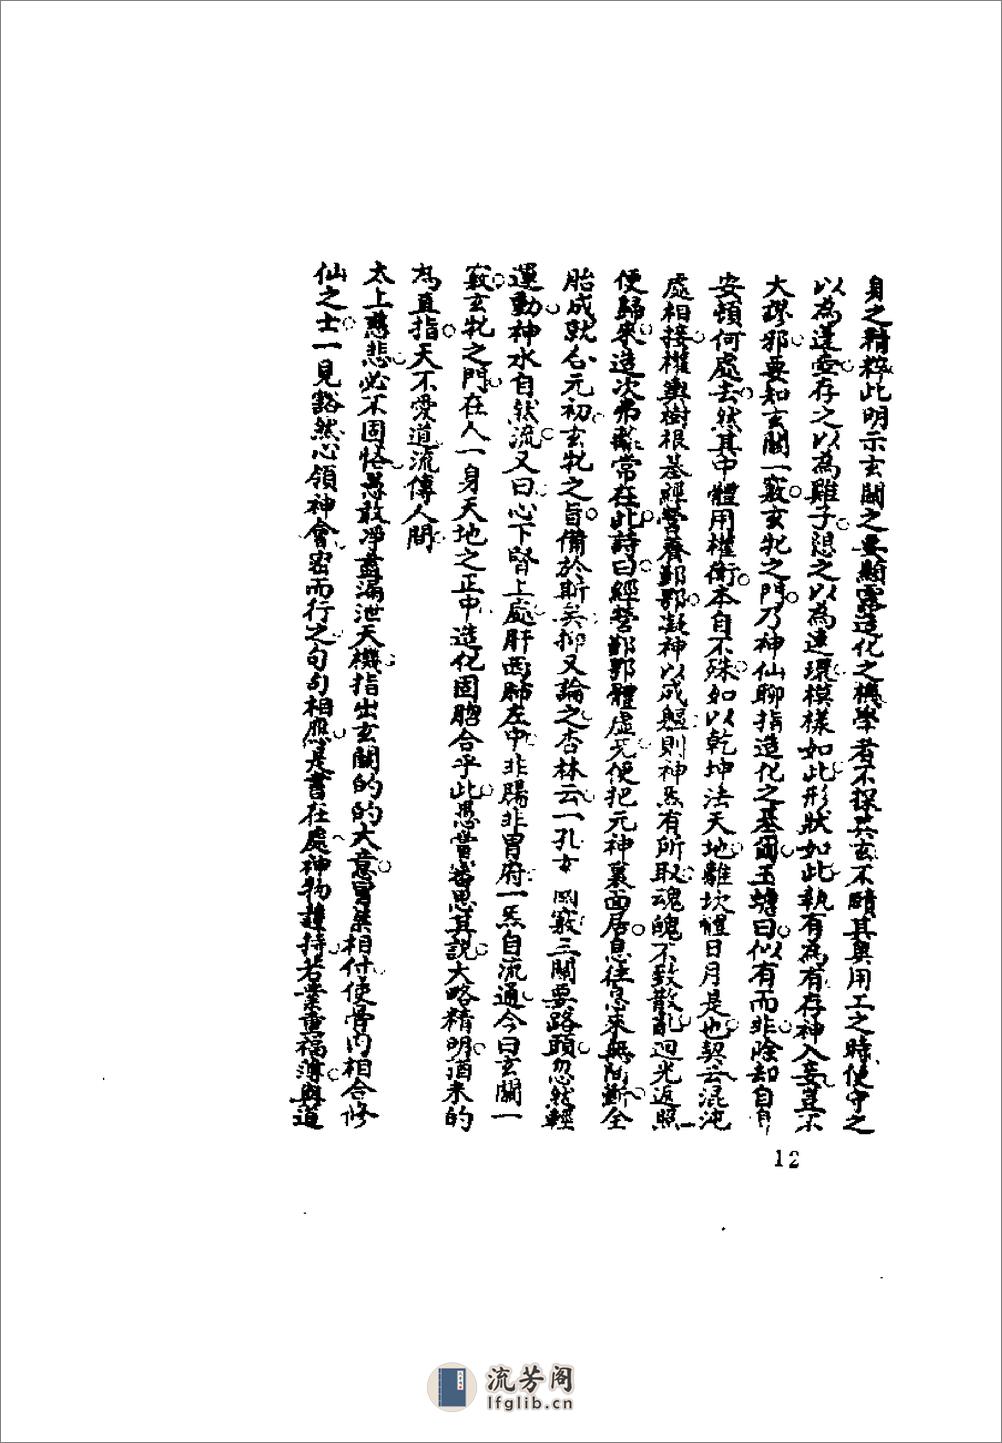 身之精粹此明示玄關之要顯露造化之機學者不探其玄不賾其奧用工之時便守之
以為蓬壺存之以為雞子想之以為連環模樣如此形狀如此執有為有存神入妄豈不
大謬邪要知玄關一竅玄牝之門乃神仙聊指造化之基爾玉蟾曰似有而非除却自身
安頓何處去然其中體用權衡本自不殊如以乾坤法天地離坎體日月是也契云混沌
處相接權輿樹根基經營養鄞鄂凝神以成軀則神炁有所取魂魄不致散亂迴光返照
便歸來造次弗離常在此詩曰經營鄞鄂體虛无便把元神裏面居息往息來無間斷全
胎成就合元初玄牝之旨備於斯矣抑又論之杏林云一孔玄關竅三關要路頭忽然輕
運動神水自然流又曰心下腎上處肝西肺左中非腸非胃府一炁自流通今曰玄關一
竅玄牝之門在人一身天地之正中造化固脗合乎此愚嘗審思其說大略精明猶未的
為直指天不愛道流傳人間
太上慈悲必不固悋愚敢淨盡漏泄天機指出玄關的的大意冒禁相付使骨肉相合修
仙之士一見豁然心領神會密而行之句句相應是書在處神物護持若業重福薄與道
12
流芳阁
lfglib.cn